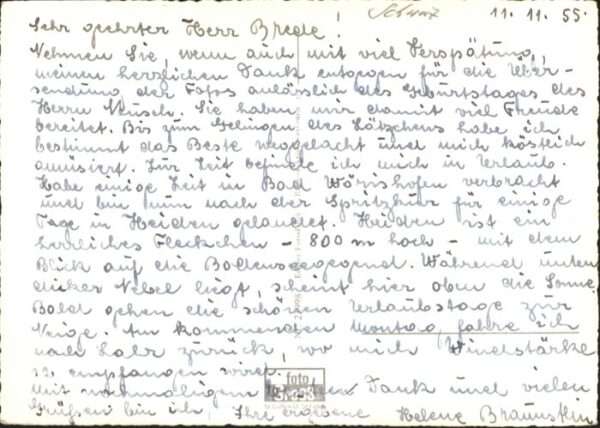 Schweiz 11. 11. 55.
Sehr geehrter Herr Brede!
Nehmen Sie, wenn auch mit viel Verspätung,
meinen herzlichen Dank entgegen für die Über-
sendung der Fotos anlässlich des Geburtstages des
Herrn Neusch. Sie haben mir damit viel Freude
bereitet. Bis zum Gelingen des Sätzchens habe ich
bestimmt das Beste weggelacht und mich köstlich
amüsiert. Zur Zeit befinde ich mich in Urlaub.
Habe einige Zeit in Bad Wörishofen verbracht
und bin nun nach der Spritzkur für einige
Tage in Heiden gelandet. Heiden ist ein
herrliches Fleckchen - 800 m hoch - mit dem
Blick auf die Bodenseegegend. Während unten
dicker Nebel liegt, scheint hier oben die Sonne.
Bald gehen die schönen Urlaubstage zur
Neige. Am kommenden Montag, fahre ich
nach Lahr zurück, wo mich Windstärke
12 empfangen wird.
Mit nochmaligem Dank und vielen
Grüßen bin ich, Ihre ergebene Helene Braunstein
foto